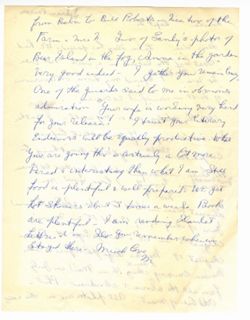 from Robin to Bill Roberts, nice view of the
Farm - Mrs R. Two of Sandy's photos of
Bear Island in the fog, Anna in the garden
Very good indeed. I gather you remain busy
One of the guards said to me in obvious
admiration "Your wife is working very hard
for your release!" I trust your literary
Endeavors will be equally productive. What
you are going thro is certainly a lot more
and interesting than what I am. Still
food is plentiful & well prepared. We get
hot showers about 2 times a week. Books
are plentiful. I am reading
Also you remember when we
stayed there. Much love